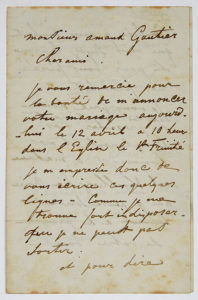 monsieur amand Gautier
Cher ami.
je vous remercie pour
la bonté de m'annoncer
votre mariage aujourd-
hui le 12 avril a 10 heur
dans l'Eglise la Ste Trinité
je m'empresse donc de
vous écrire ces quelques
lignes - Comme je me
trouve fort indisposer
je ne peut pas
sortir.
et pour dire